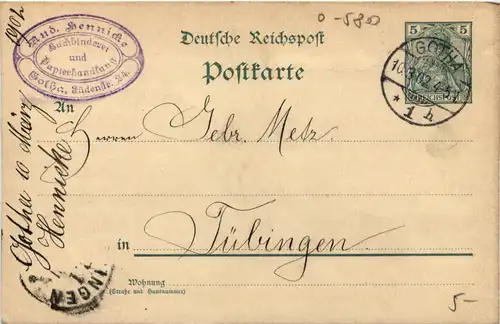 Rud. Hennicke
Buchbinderei
und
Papierhandlung
Gotha, Südenstr. 24.
0-580
Deutsche Reichspost
Postkarte
5 5
REICHSPOST
GOTHA
10.3.02.
* 1 h
An
Herren Gebr. Metz.
in Tübingen.
Wohnung
(Straße und Hausnummer)
Gotha 10 März 1902
Hennicke
INGEN
5-